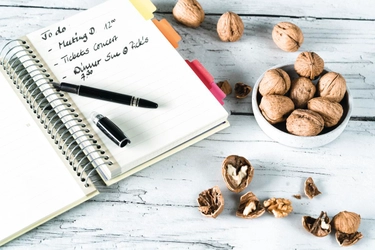 To do
- Meeting D 12.00
- Tickets Concert
- Dinner Sue @ Rick's
7.30